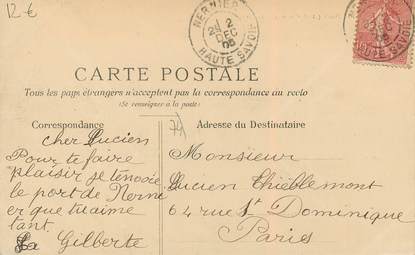 12 €
NERNIER
2
DEC
05
HAUTE SAVOIE
CARTE POSTALE
Tous les pays étrangers n'acceptent pas la correspondance au recto
(Se renseigner à la poste)
Correspondance
74
Adresse du Destinataire
cher Lucien
Pour te faire
plaisir je t'envoie
le port de Nerni
er que tu aime
tant.
Gilberte
Monsieur
Lucien Thieblemont
64 rue St Dominique
Paris